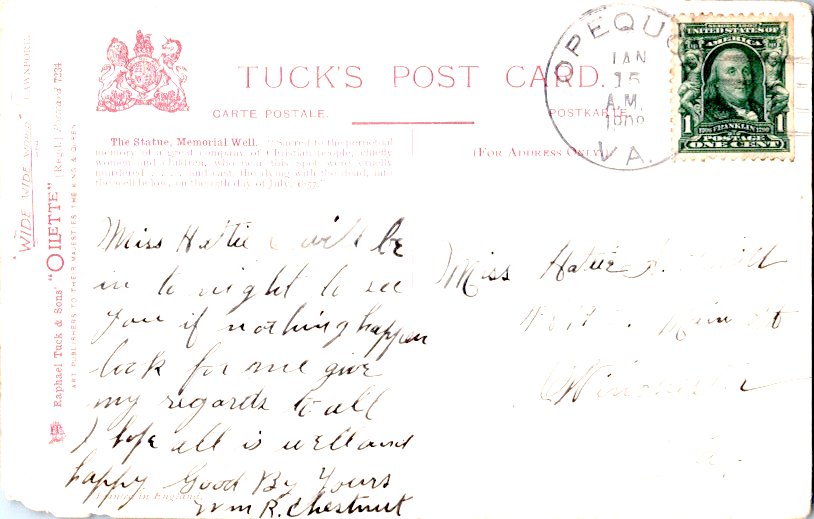 TUCK'S POST CARD.
CARTE POSTALE.
POSTKARTE.
(FOR ADDRESS ONLY.)
The Statue, Memorial Well. "Sacred to the perpetual
memory of a great company of Christian people, chiefly
women and children, who near this spot were cruelly
murdered . . . . and cast, the dying with the dead, into
the well below, on the
day of July,
"WIDE WIDE WORLD"
CAWNPORE.
Raphael Tuck & Sons' "OILETTE" (Regd.) Postcard 7234
ART PUBLISHERS TO THEIR MAJESTIES THE KING & QUEEN
OPEQUO
JAN
15
A.M.
VA.
SERIES 1902
UNITED STATES OF
AMERICA
1 1
1706 FRANKLIN 1790
POSTAGE
ONE CENT
Miss Hattie I will be
in to night to see
you if nothing happen
look for me give
my regards to all
I hope all is well and
happy Good By Yours
Wm R. Chestnut
Printed in England.
Miss Hattie
Main St
Winchester